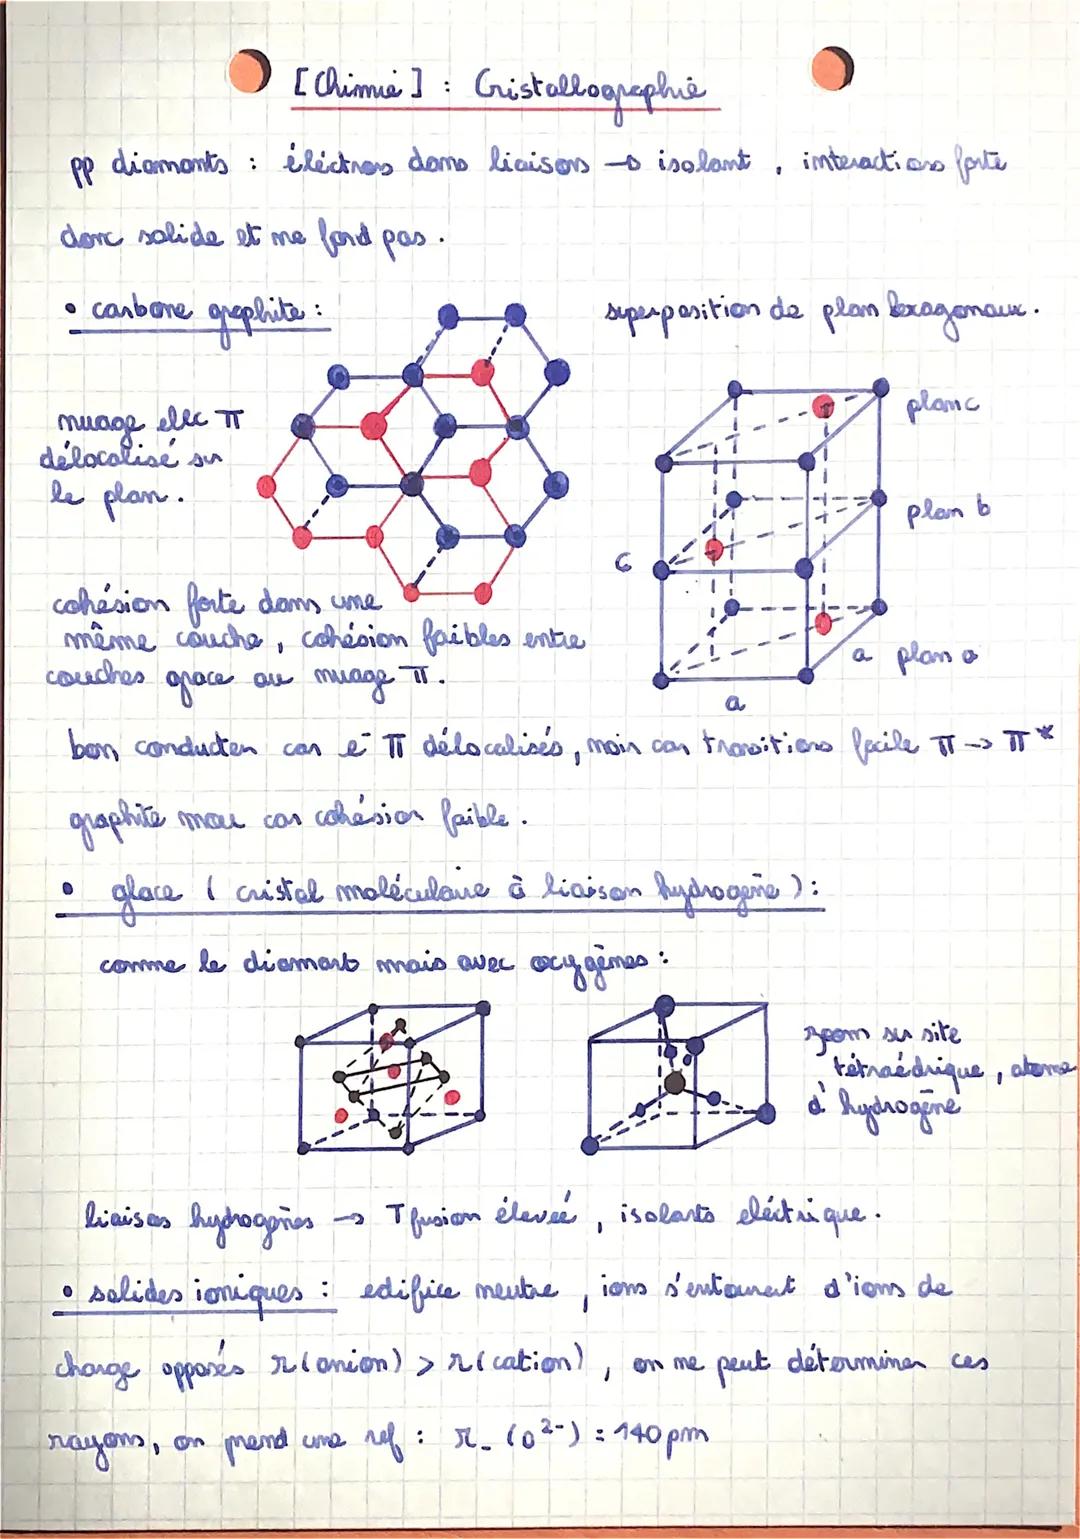 [Chimie] : Cristallographie
pp diamants : éléctrons dans liaisons → isolant, interactions forte
donc solide et ne fond pas.
• carbone graphite :
superposition de plan hexagonaux.
nuage elec π
délocalisé sur
le plan.
plan c
plan b
c
a plan a
a
cohésion forte dans une
même couche, cohésion faibles entre
couches grace au nuage π.
bon conducteur car e⁻ π délocalisés, mais car transitions facile π → π*
graphite mou car cohésion faible.
• glace ( cristal moléculaire à liaison hydrogène ) :
comme le diamant mais avec oxygènes :
zoom sur site
tétraédrique, atome
d'hydrogène
liaisons hydrogènes → T fusion élevée, isolants eléctrique.
• solides ioniques : edifice neutre, ions s'entourent d'ions de
charge opposés r(anion) > r(cation), on ne peut déterminer ces
rayons, on prend une ref : r₋ (O²⁻) = 140 pm